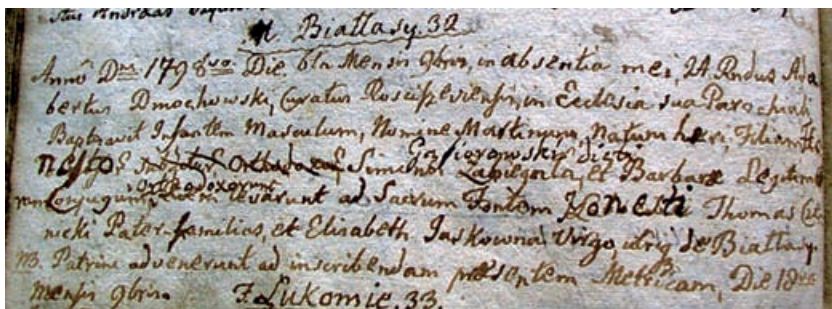 stus Andreas
Białlasy. 32
Anno Dni 1798vo Die 6ta Mensis 9bris, in absentia mei, Rndus Ada
bertus Dmochowski, Curatus Rosciszeviensis, in Ecclesia sua Parochiali
Baptizavit Infantem Masculum, Nomine Martinum, Natum heri, Filium Ho
nesto Gąsiorowski dicti
Simonis Łapigęta, et Barbarae Legitimo
Orthodoxorum
rum Conjugum, levarunt ad Sacrum Fontem Honesti Thomas
nicki Pater familias, et Elisabeth Jaskowna Virgo, utriq de Białlasy.
NB. Patrini advenerunt ad inscribendam praesentem Metricam, Die 18va
Mensis 9bris. F. Łukomie. 33.